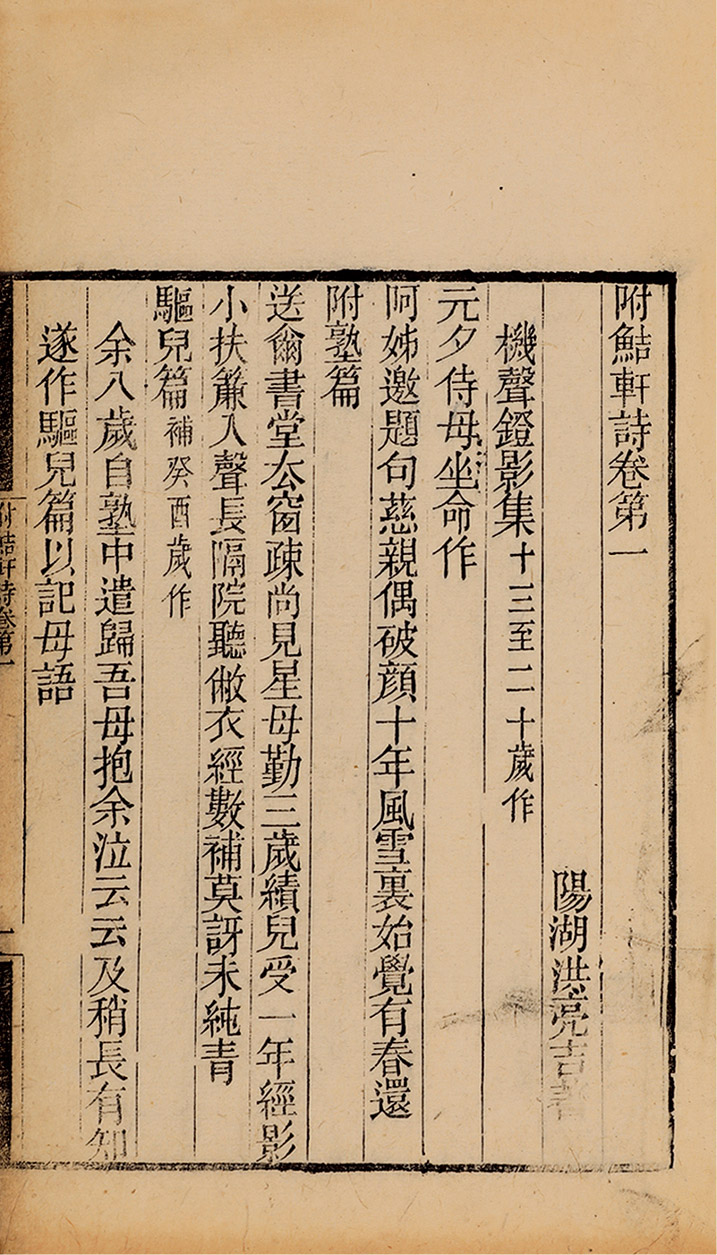 附鮚軒詩卷第一
陽湖洪亮吉著
機聲鐙影集十三至二十歲作
元夕侍母坐命作
阿姊邀題句慈親偶破顏十年風雪裏始覺有春還
附塾篇
送爾書堂厺窗疎尚見星母勤三歲績兒受一年經影
小扶簾入聲長隔院聽敝衣經數補莫訝未純青
驅兒篇補癸酉歲作
余八歲自塾中遣歸吾母抱余泣云云及稍長有知
遂作驅兒篇以記母語
附鮚軒詩卷第一
一